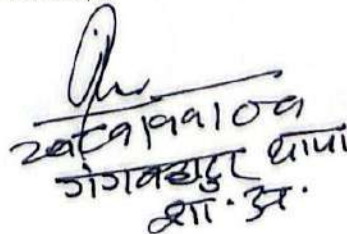 २०८१।११।०१
गंगबहादुर थापा
शा. अ.